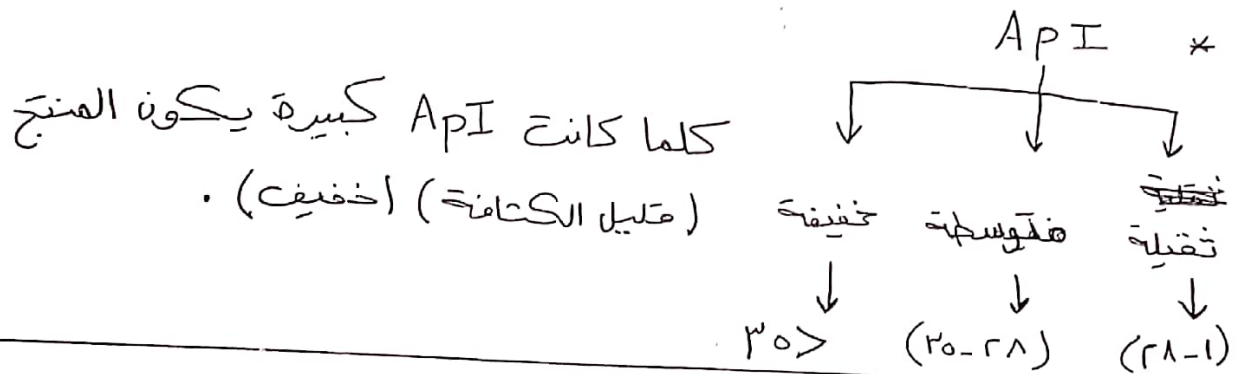 * ApI
ثقيلة متوسطة خفيفة
(٢٨-١) (٣٥-٢٨) ٣٥>
كلما كانت ApI كبيرة يكون المنتج
(قليل الكثافة) (خفيف) .